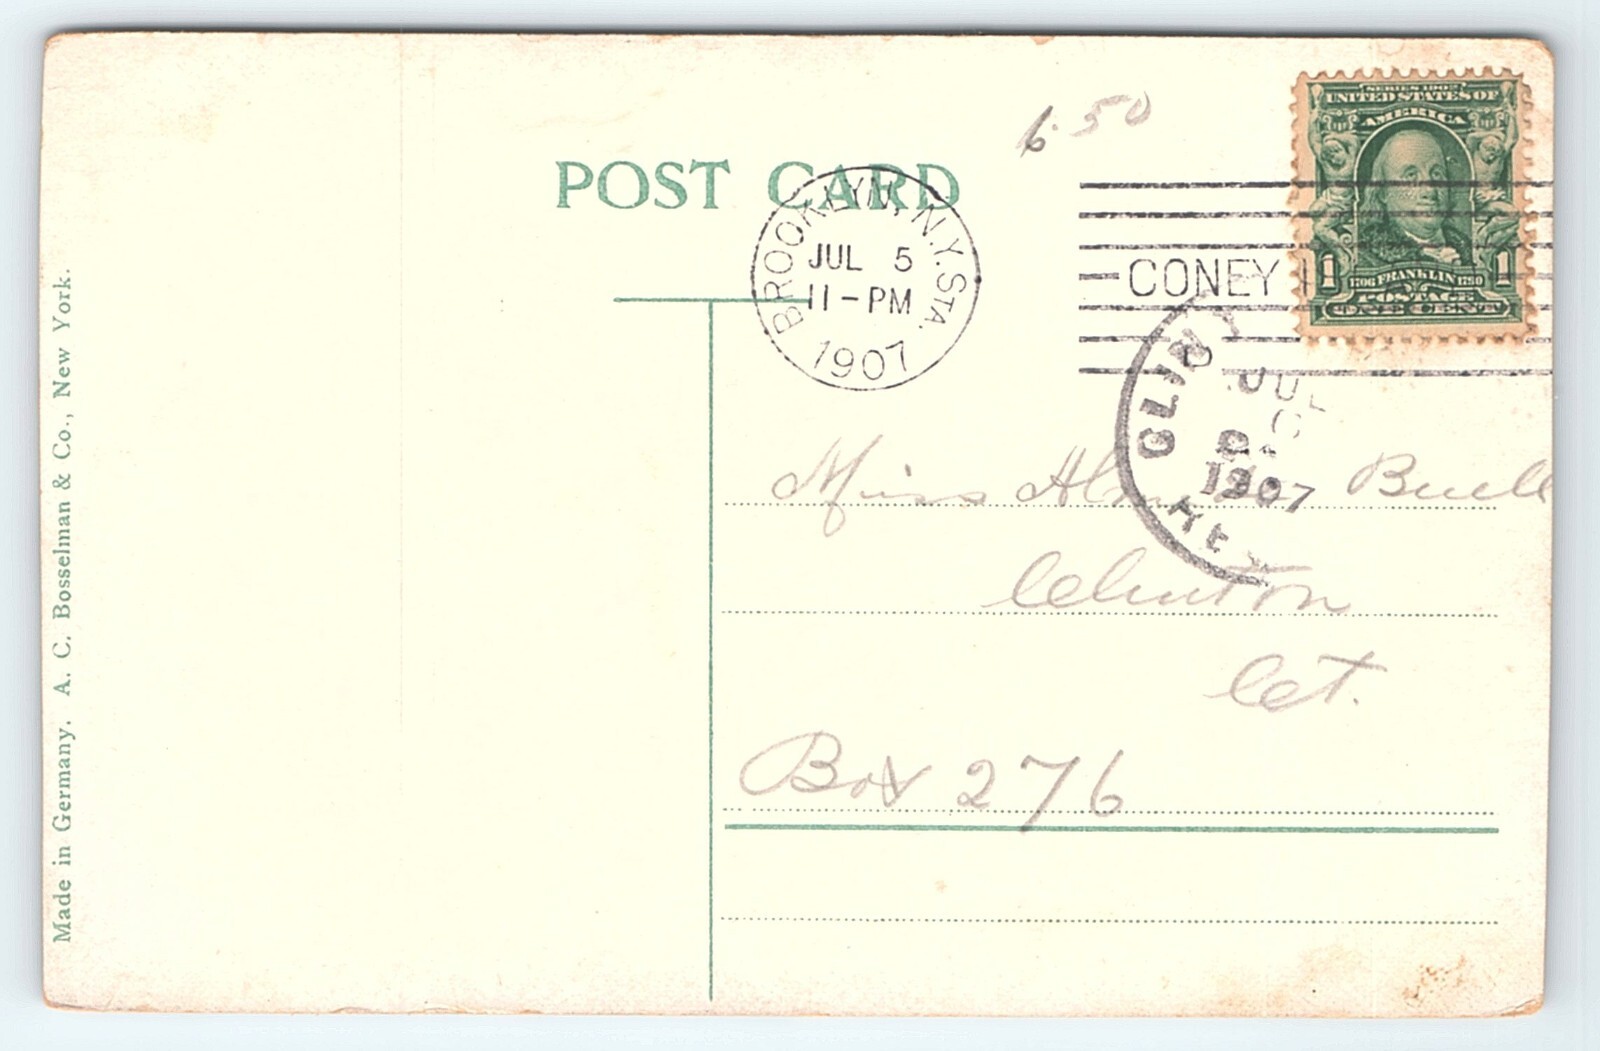 6.50
SERIES 1902
UNITED STATES OF
AMERICA
1 FRANKLIN 1
1706 1790
POSTAGE
ONE CENT
POST CARD
BROOKLYN, N.Y. STA.
JUL 5
11-PM
1907
CONEY I
CLIN
JUL
6
1907
Miss Buell
Clinton
Ct.
Box 276
Made in Germany. A. C. Bosselman & Co., New York.